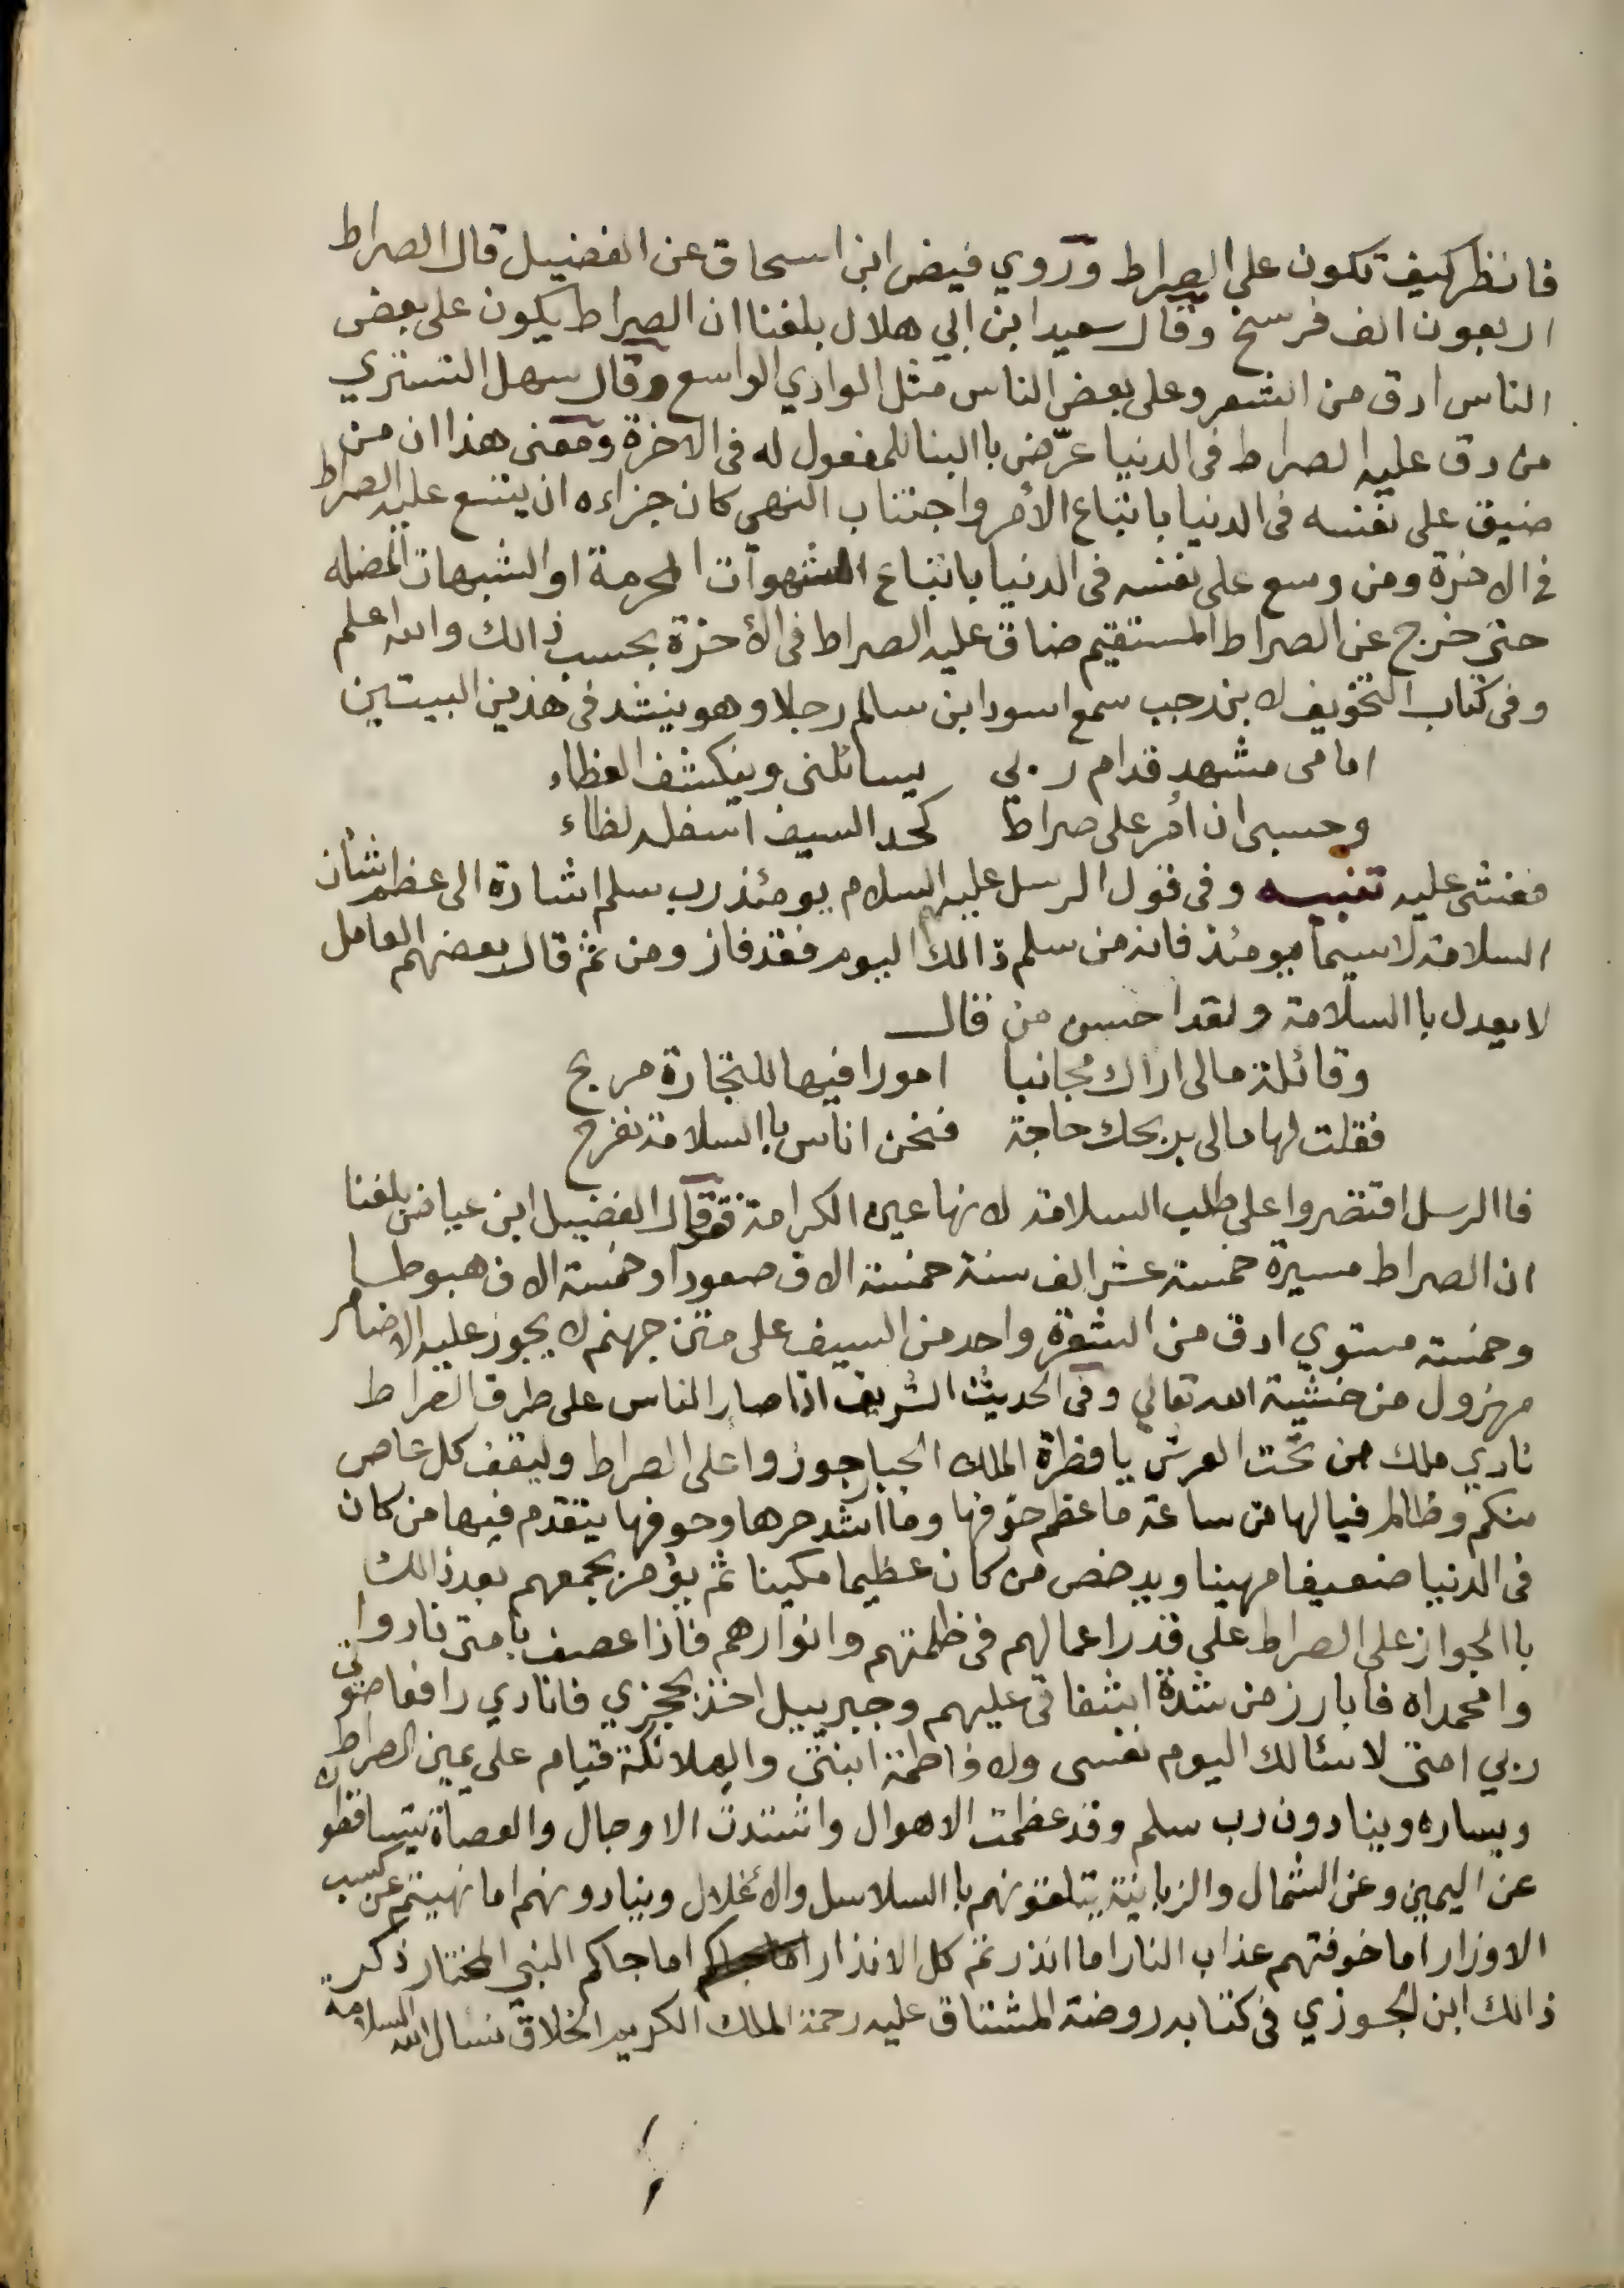 فانظر كيف تكون على الصراط وروي فيض ابن اسحاق عن الفضيل قال الصراط
اربعون الف فرسخ وقال سعيد ابن ابي هلال بلغنا ان الصراط يكون على بعض
الناس ادق من الشعر وعلى بعض الناس مثل الوادي الواسع وقال سهل التستري
من دق عليه الصراط فى الدنيا عرّض باالبنا للمفعول له فى الاخرة ومعنى هذا ان من
ضيق على نفسه فى الدنيا باتباع الأمر واجتناب النهى كان جزاءه ان يتسع عليه الصراط
فى الاخرة ومن وسع على نفسه فى الدنيا باتباع الشهوات المحرمة او الشبهات المضله
حتى خرج عن الصراط المستقيم ضاق عليه الصراط فى الأخرة بحسب ذالك والله اعلم
وفى كتاب التخويف لابن رجب سمع اسود ابن سالم رجلا وهو ينشد فى هذين البيتين
امامى مشهد قدام ربي يسائلنى وينكشف الغطاء
وحسبى ان أمر على صراط كحد السيف اسفله لظاء
فغشى عليه تنبيه وفى قول الرسل عليهم السلام يومئذ رب سلم اشارة الى عظم شأن
السلامة لاسيما يومئذ فانه من سلم ذالك اليوم فقد فاز ومن ثم قال بعضهم العامل
لا يعدل باالسلامة ولقد احسن من قال
وقائلة مالى اراك مجانبا امورا فيها للتجارة مربح
فقلت لها مالى بربحك حاجة فنحن اناس باالسلامة نفرح
فاالرسل اقتصروا على طلب السلامة لانها عين الكرامة وقال الفضيل ابن عياض بلغنا
ان الصراط مسيرة خمسة عشر الف سنة خمسة الاف صعودا وخمسة الاف هبوطا
وخمسة مستوي ادق من الشعرة واحد من السيف على متن جهنم لا يجوز عليه الا ضامر
مهزول من خشية الله تعالي وفى الحديث الشريف اذا صار الناس على طرف الصراط
نادي ملك من تحت العرش يا فطرة الملك الجبار جوزوا على الصراط وليقف كل عاص
منكم وظالم فيالها من ساعة ما عظم خوفها وما اشد حرها وخوفها يتقدم فيها من كان
فى الدنيا ضعيفا مهينا ويدحض من كان عظيما مكينا ثم يؤمر بجمعهم بعد ذالك
باالجواز على الصراط على قدر اعمالهم فى ظلمتهم وانوارهم فاذا عصف بأمتى نادوا
وامحمداه فابارز من شدة اشفاقى عليهم وجبرييل اخذ بحجزي فانادي رافعا صوتى
ربي امتى لا سئالك اليوم نفسى ولا فاطمة ابنتى والملائكة قيام على يمين الصراط
ويساره وينادون رب سلم وقد عظمت الاهوال واشتدت الاوجال والعصاة يتساقطون
عن اليمين وعن الشمال والزبانية يتلقونهم باالسلاسل والأغلال وينادونهم اما نهيتم عن كسب
الاوزار اما خوفتهم عذاب النار اما انذرتم كل الانذار اما جاكم النبي المختار ذكر
ذالك ابن الجوزي فى كتابه روضة المشتاق عليه رحمة الملك الكريم الخلاق نسال الله السلامة